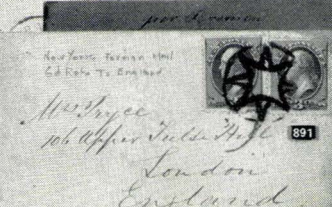 per Bremen
New York Foreign Mail
6d Rate To England
Mrs Pryce
106 Upper Tulse Hill
891
London
England